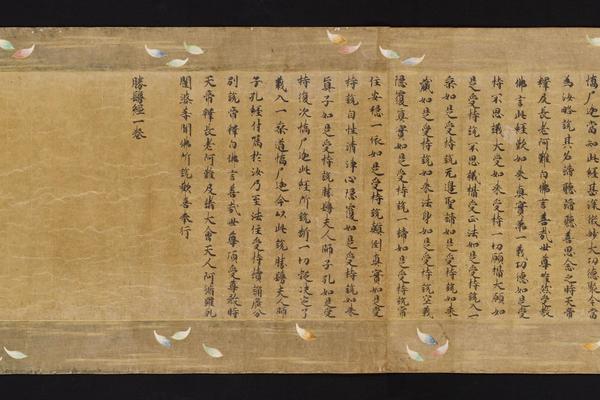 憍尸迦當知此經甚深微妙大功德聚今當
為汝略說其名諦聽諦聽善思念之時天帝
釋及長老阿難白佛言善哉世尊唯然受教
佛言此經歎如来真實第一義功德如是受
持不思議大受如是受持一切願攝大願如
是受持說不思議攝受正法如是受持說入一
乘如是受持說无邊聖諦如是受持說如来
藏如是受持說如来法身如是受持說空義
隱覆真實如是受持說一諦如是受持說常
住安穩一依如是受持說顛倒真實如是受
持說自性清淨心隱覆如是受持說如来
真子如是受持說勝鬘夫人師子孔如是受
持復次憍尸迦此經所說斷一切疑決定了
義入一乘道憍尸迦今以此說勝鬘夫人師
子孔經付囑於汝乃至法住受持讀誦廣分
別說帝釋白佛言善哉世尊頂受尊教時
天帝釋長老阿難及諸大會天人阿脩羅乹
闥婆等聞佛所說歡喜奉行
勝鬘經一卷